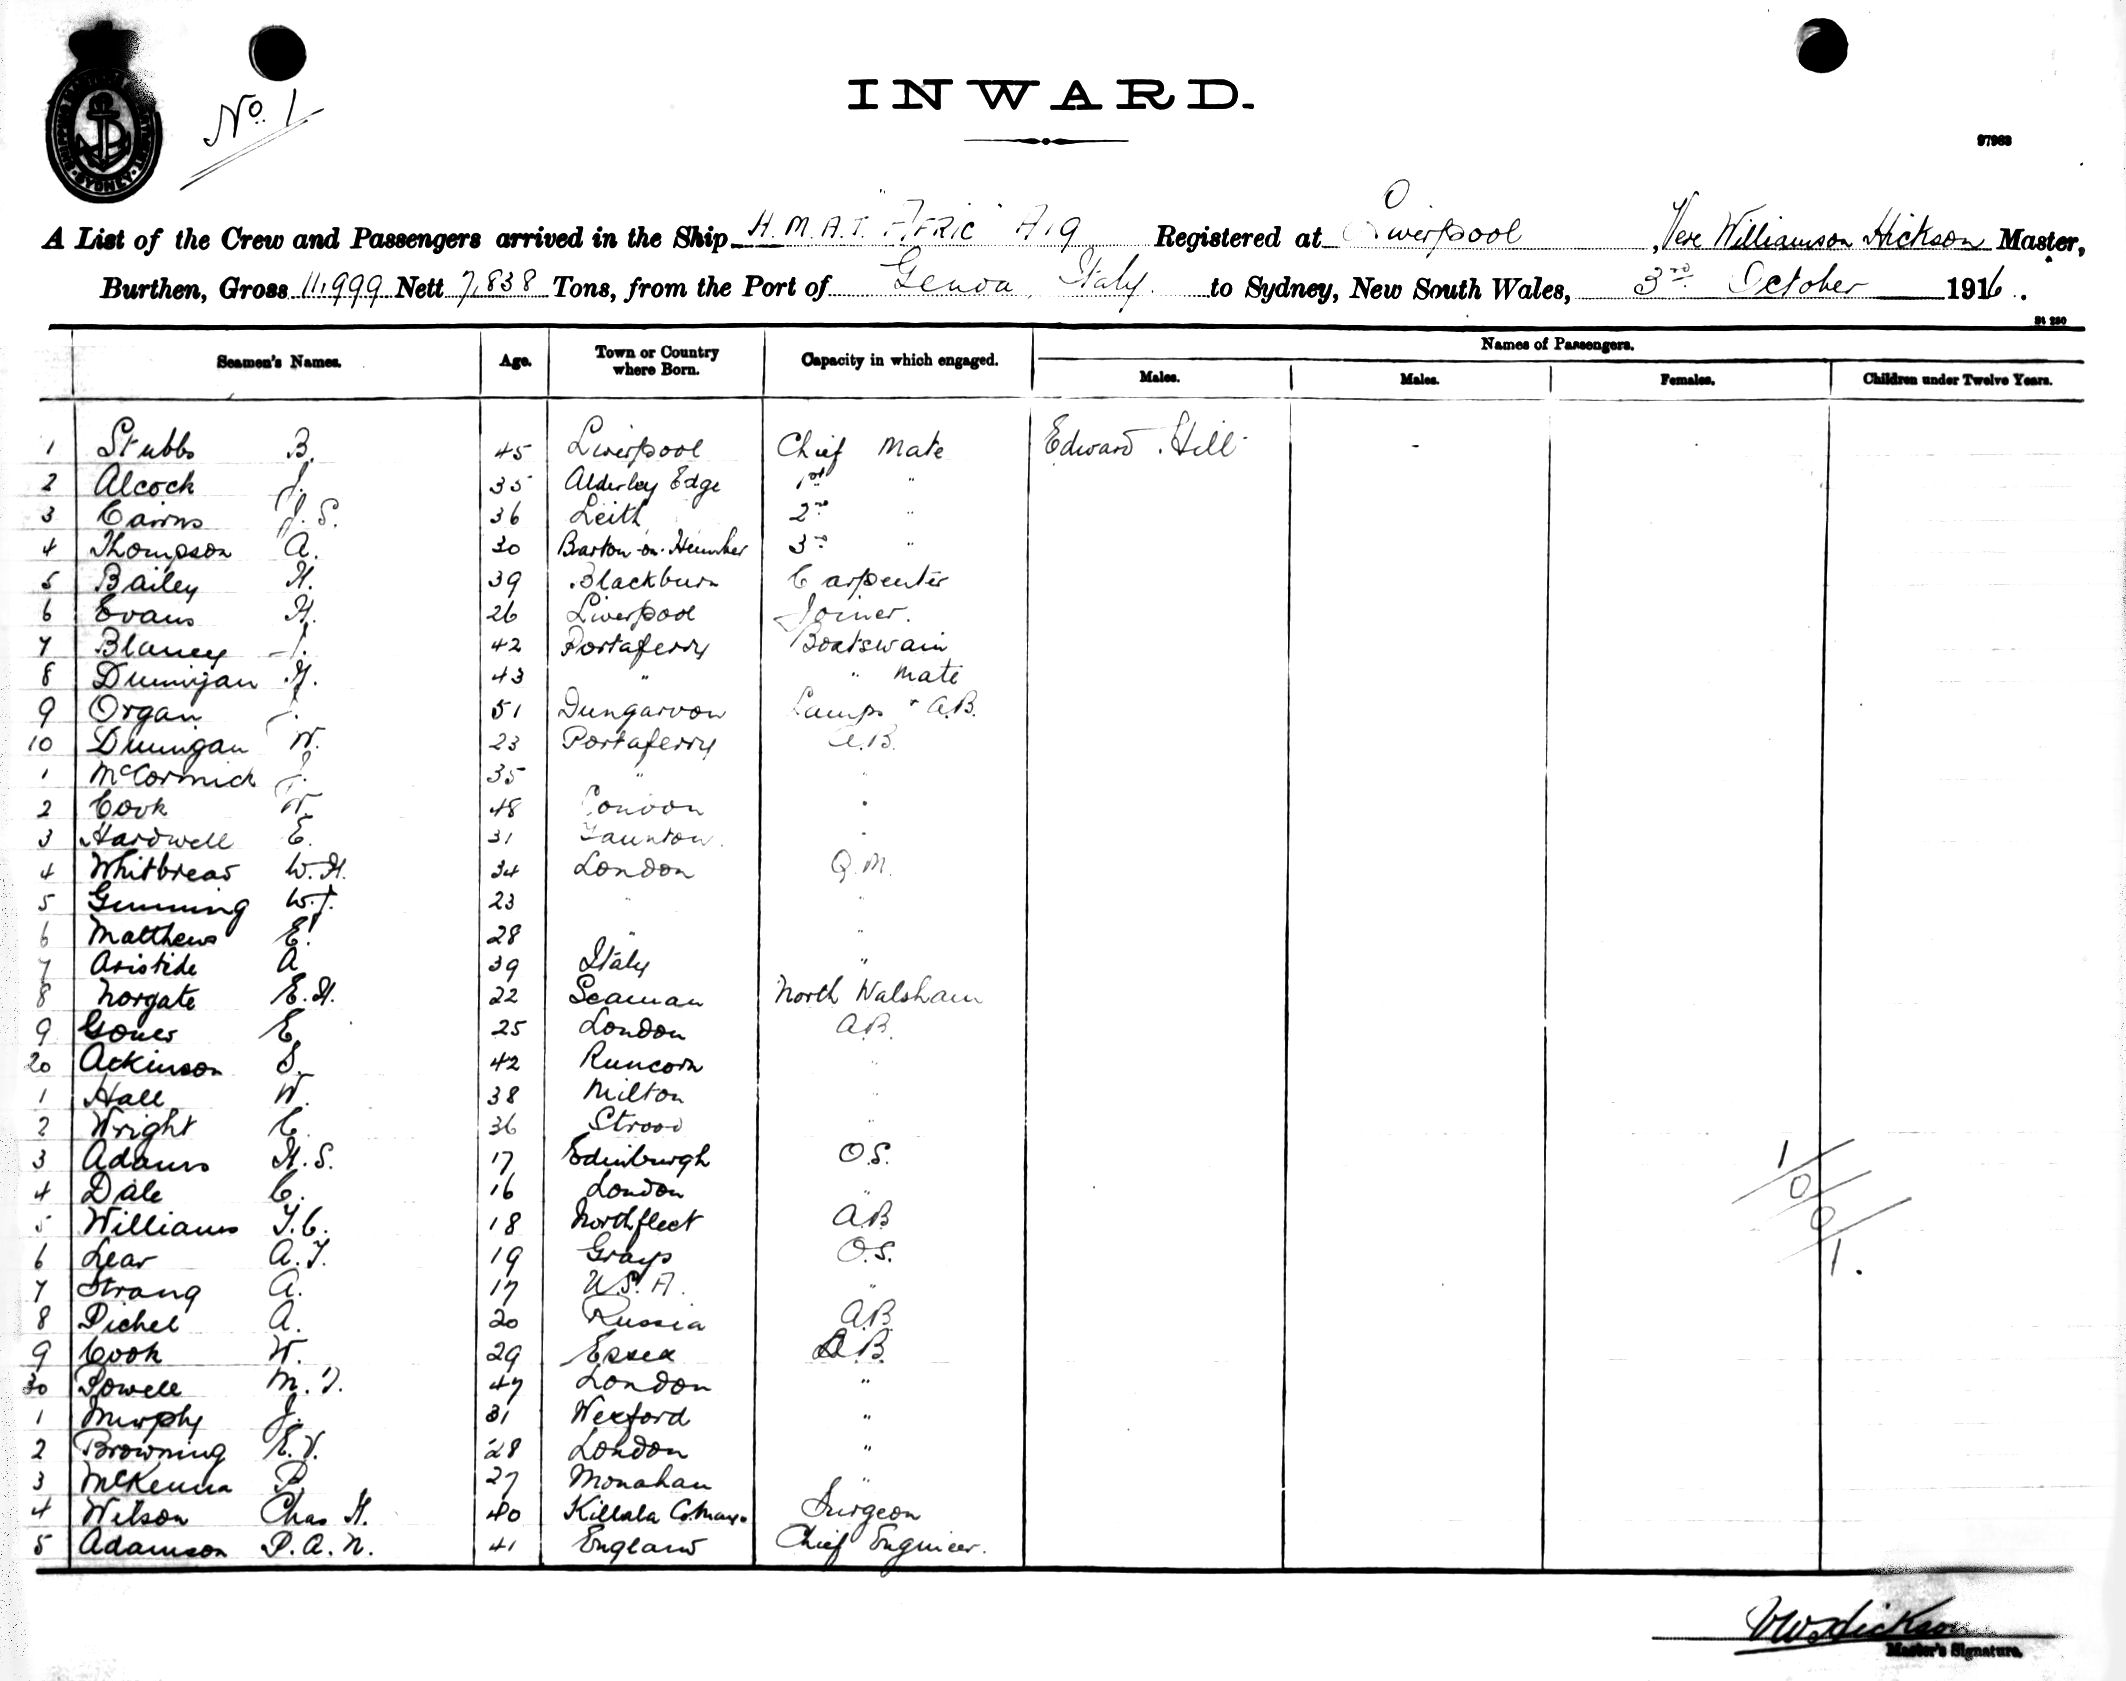 No. 1
INWARD.
97963
A List of the Crew and Passengers arrived in the Ship H.M.A.T. "AFRIC" A19 Registered at Liverpool, Vere Williamson Hickson Master,
Burthen, Gross 11,999 Nett 7,838 Tons, from the Port of Genoa, Italy. to Sydney, New South Wales, 3rd October 1916.
St 250
Seamen's Names. Age. Town or Country where Born. Capacity in which engaged. Names of Passengers.
Males. Males. Females. Children under Twelve Years.
1 Stubbs B. 45 Liverpool Chief Mate Edward Hill -
2 Alcock J. 35 Alderley Edge 1st "
3 Cairns J.S. 36 Leith 2nd "
4 Thompson A. 30 Barton-on-Humber 3rd "
5 Bailey H. 39 Blackburn Carpenter
6 Evans H. 26 Liverpool Joiner.
7 Blaney J. 42 Portaferry Boatswain
8 Dunnigan H. 43 " " Mate
9 Organ J. 51 Dungarvon Lamps & A.B.
10 Dunnigan W. 23 Portaferry A.B.
1 McCormick J. 35 " "
2 Cook W. 48 London "
3 Hardwell E. 31 Taunton. "
4 Whitbread W.H. 34 London Q.M.
5 Gunning W.J. 23 " "
6 Matthews E. 28 " "
7 Aristide A 39 Italy "
8 Norgate E.H. 22 Seaman North Walsham
9 E. 25 London A.B.
20 Ackinson S. 42 Runcorn "
1 Hall W. 38 Milton "
2 Wright C. 36 Strood "
3 Adams H.S. 17 Edinburgh O.S.
4 Dale C. 16 London "
5 Williams T.C. 18 Northfleet A.B
6 Lear A.T. 19 Grays O.S.
7 Strang A. 17 U.S.A. "
8 Pichel A. 20 Russia A.B.
9 Cook W. 29 Essex A.B.
30 Powell M.J. 47 London "
1 Murphy J. 31 Wexford "
2 Browning E.V. 28 London "
3 McKenna P. 27 Monahan "
4 Wilson Chas H. 40 Killala Co. Mayo Surgeon
5 Adamson P.A.N. 41 England Chief Engineer.
1/0/0/1.
VWHickson
Master's Signature.